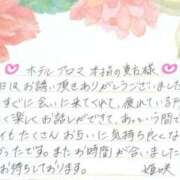 ホテルアロマ本指の真右様
日はお誘い頂きありがとうございました
すぐに会いに来てくれて、
楽しくお話しができて、あっという間で
もたくさんお互いに気持ち良くな
かったです。またお時間が合いました
お待ちしております。 姫咲